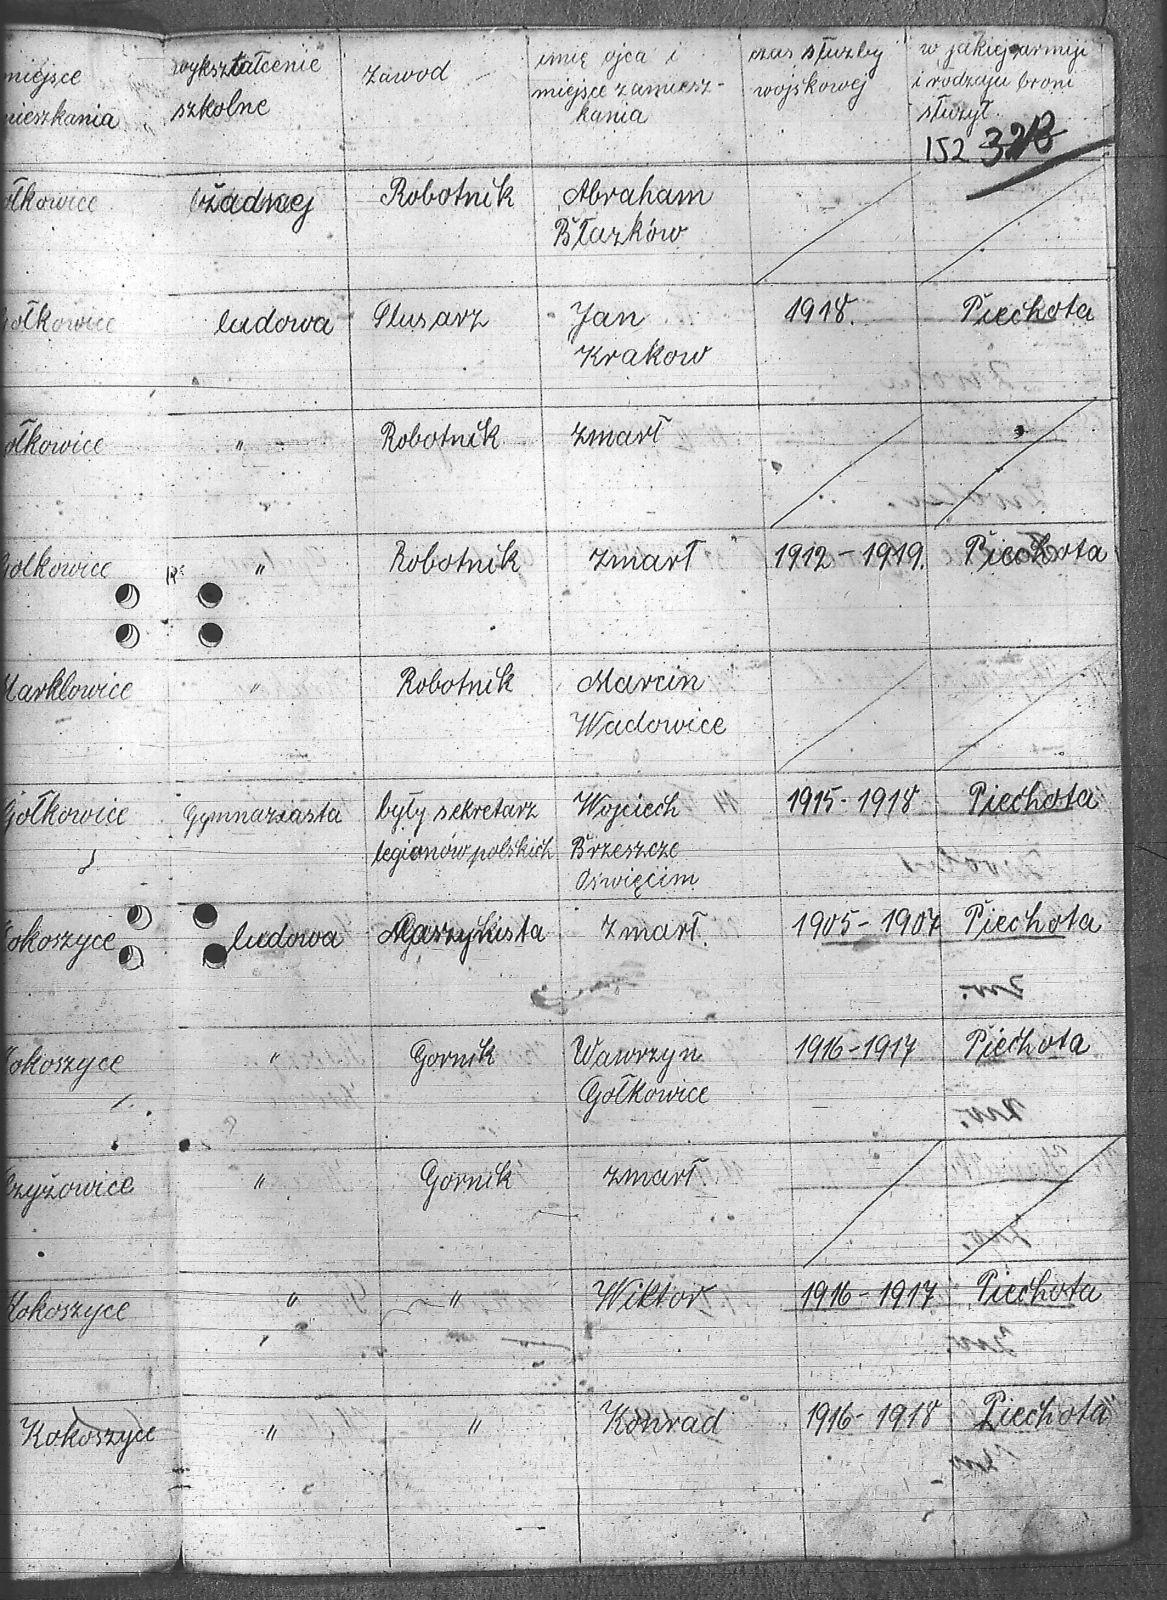 miejsce
mieszkania
wykształcenie
szkolne
zawod
imię ojca i
miejsce zamiesz-
kania
czas służby
wojskowej
w jakiej armji
i rodzaju broni
służył.
152 328
ołkowice żadnej Robotnik Abraham
Błazków
Gołkowice ludowa Slusarz Jan 1918. Piechota
Krakow
ołkowice " Robotnik zmarł
Gołkowice " Robotnik zmarł 1912-1919. Piechota
Marklowice " Robotnik Marcin
Wadowice
Gołkowice Gymnazasta były sekretarz Wojciech 1915-1918 Piechota
legionów polskich Brzeszcze
Oświęcim
Kokoszyce ludowa Maszynista Zmarł. 1905-1907 Piechota
Kokoszyce " Gornik Wawrzyn 1916-1917 Piechota
Gołkowice
Czyżowice " Gornik zmarł
Kokoszyce " " Wiktor 1916-1917 Piechota
"
Kokoszyce " " Konrad 1916-1918 Piechota